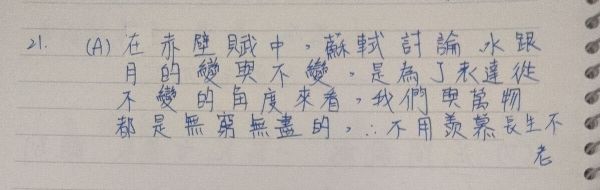 21. (A) 在赤壁賦中，蘇軾討論水跟
月的變與不變，是為了表達從
不變的角度來看，我們與萬物
都是無窮無盡的，∴不用羨慕長生不
老